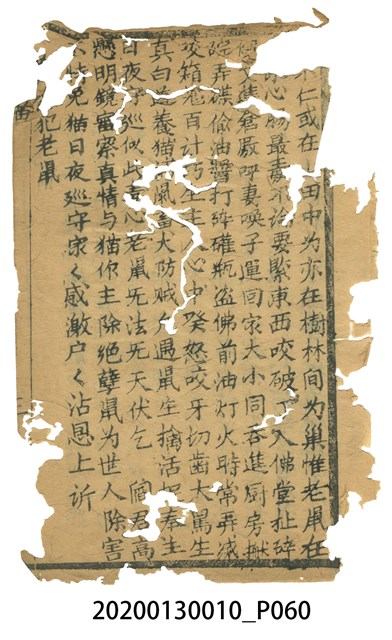 仁或在田中为亦在樹林间为巢惟老鼠在
心肠最毒不论要緊東西咬破入佛堂扯碎
倉廒呼妻唤子運回家大小同吞進厨房掀
弄碟偷油醬打碎礶瓶盗佛前油灯火時常弄滅
咬箱笼百计巧生主人心中癸怒咬牙切齒大罵生
真白养猫鼠畜大防贼遇鼠生擒活奉主
日夜守巡似此心老鼠旡法旡天伏乞阎君高
懸明鏡審察真情与猫作主除绝孽鼠為世人除害
免猫日夜巡守家々感激户々沾恩上訴
犯老鼠
20200130010_P060